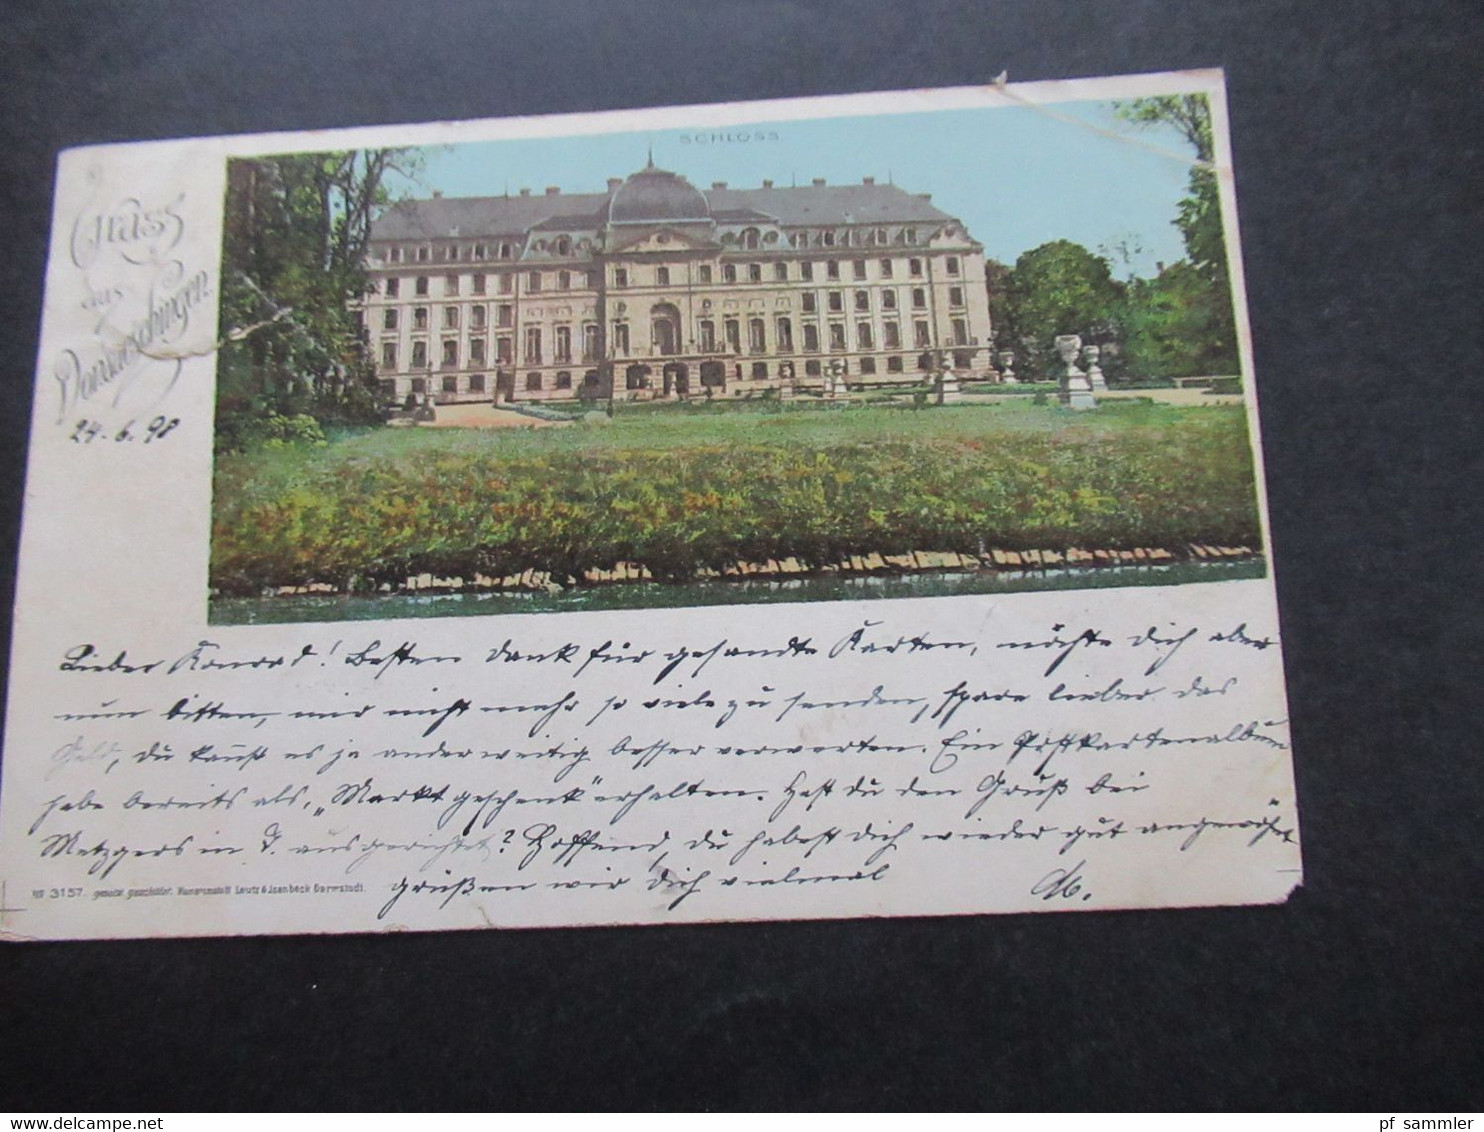 SCHLOSS
Gruss
aus
Donaueschingen.
24. 6. 98
Lieber Konrad! Besten Dank für gesandte Karten, möchte Dich aber
nun bitten, mir nicht mehr so viele zu senden, spare lieber das
Geld, Du kannst es ja anderweitig besser verwerten. Ein Postkartenalbum
habe bereits als „Marktgeschenk" erhalten. Hast Du den Gruß bei
Metzgers in T. ausgerichtet? Hoffend, Du habest Dich wieder gut angewöhnt
grüßen wir Dich vielmal
No 3157. gesetzl. geschützt. Kunstanstalt Lautz & Isenbeck Darmstadt.
delcampe.net
pf_sammler